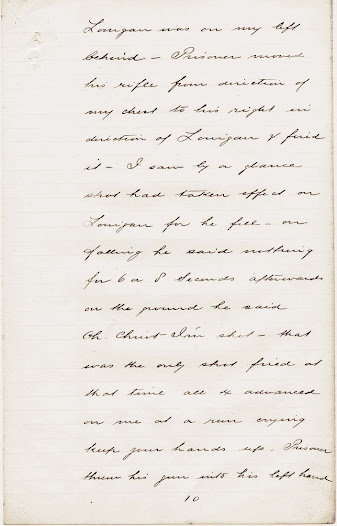 Lonigan was on my left
behind – Prisoner moved
his rifle from direction of
my chest to his right in
direction of Lonigan & fired
it – I saw by a glance
shot had taken effect on
Lonigan for he fell – on
falling he said nothing
for 6 or 8 seconds afterwards
on the ground he said
Oh Christ I'm shot – that
was the only shot fired at
that time all 4 advanced
on me at a run crying
keep your hands up. Prisoner
threw his gun into his left hand
10